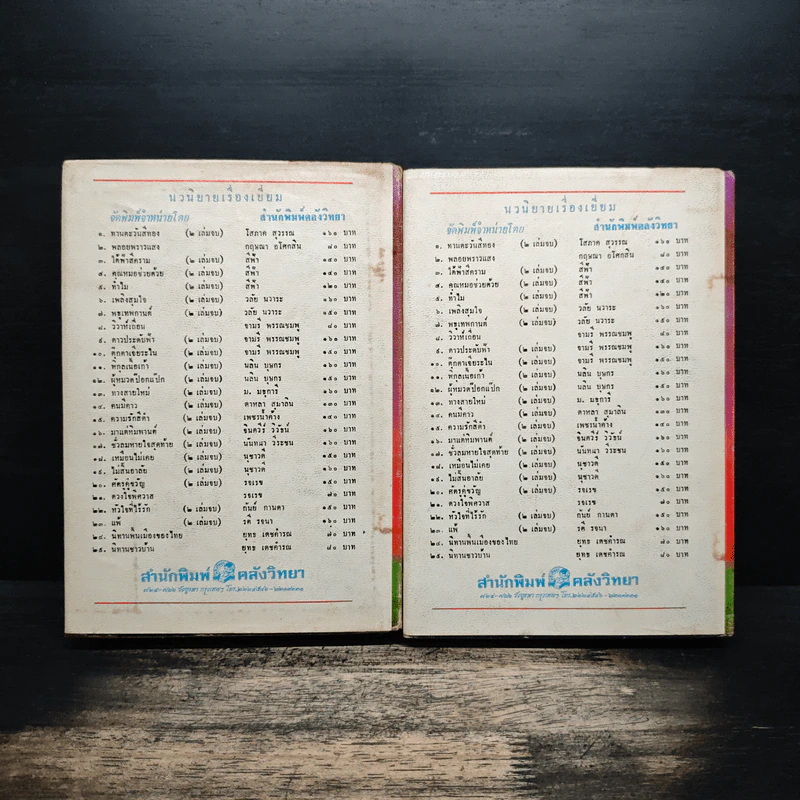 นวนิยายเรื่องเยี่ยม
จัดพิมพ์จำหน่ายโดย สำนักพิมพ์คลังวิทยา
๑. ทานตะวันสีทอง (๒ เล่มจบ) โสภาค สุวรรณ ๑๖๐ บาท
๒. พลอยพราวแสง กฤษณา อโศกสิน ๘๐ บาท
๓. ใต้ฟ้าสีคราม (๒ เล่มจบ) สีฟ้า ๑๕๐ บาท
๔. คุณหมอช่วยด้วย (๒ เล่มจบ) สีฟ้า ๑๕๐ บาท
๕. ทำไม (๒ เล่มจบ) สีฟ้า ๑๒๐ บาท
๖. เพลิงสุมใจ (๒ เล่มจบ) วลัย นวาระ ๑๖๐ บาท
๗. พธูเทพกานต์ (๒ เล่มจบ) วลัย นวาระ ๑๕๐ บาท
๘. วิวาห์เถื่อน จามรี พรรณชมพู ๘๐ บาท
๙. ดาวประดับฟ้า (๒ เล่มจบ) จามรี พรรณชมพู ๑๖๐ บาท
๑๐. ตุ๊กตาเจียระไน (๒ เล่มจบ) จามรี พรรณชมพู ๑๕๐ บาท
๑๑. พิกุลเนื้อเก้า (๒ เล่มจบ) นลิน บุษกร ๑๖๐ บาท
๑๒. ผู้หมวดป๊อกแป๊ก (๒ เล่มจบ) นลิน บุษกร ๑๕๐ บาท
๑๓. ทางสายใหม่ (๒ เล่มจบ) ม. มธุการี ๑๖๐ บาท
๑๔. คนมีคาว (๒ เล่มจบ) ดาหลา สมาลิน ๑๓๐ บาท
๑๕. ความรักสีดำ (๒ เล่มจบ) เพชรน้ำค้าง ๑๔๐ บาท
๑๖. มาแต่หิมพานต์ (๒ เล่มจบ) จินตวีร์ วิวัธน์ ๑๖๐ บาท
๑๗. ชั่วลมหายใจสุดท้าย (๒ เล่มจบ) นันทนา วีระชน ๑๖๐ บาท
๑๘. เหมือนไม่เคย (๒ เล่มจบ) นุชาวดี ๑๕๐ บาท
๑๙. ไม่สิ้นอาลัย (๒ เล่มจบ) นุชาวดี ๑๖๐ บาท
๒๐. ศัตรูคู่ขวัญ (๒ เล่มจบ) รจเรข ๑๕๐ บาท
๒๑. ดวงใจพิศวาส รจเรข ๗๐ บาท
๒๒. หัวใจที่ไร้รัก (๒ เล่มจบ) กันย์ กานดา ๑๕๐ บาท
๒๓. แพ้ (๒ เล่มจบ) รตี รจนา ๑๖๐ บาท
๒๔. นิทานพื้นเมืองของไทย ยุทธ เดชคำรณ ๗๐ บาท
๒๕. นิทานชาวบ้าน ยุทธ เดชคำรณ ๘๐ บาท
สำนักพิมพ์ คลังวิทยา
วังบูรพา กรุงเทพฯ โทร.
นวนิยายเรื่องเยี่ยม
จัดพิมพ์จำหน่ายโดย สำนักพิมพ์คลังวิทยา
๑. ทานตะวันสีทอง (๒ เล่มจบ) โสภาค สุวรรณ ๑๖๐ บาท
๒. พลอยพราวแสง กฤษณา อโศกสิน ๘๐ บาท
๓. ใต้ฟ้าสีคราม (๒ เล่มจบ) สีฟ้า ๑๕๐ บาท
๔. คุณหมอช่วยด้วย (๒ เล่มจบ) สีฟ้า ๑๕๐ บาท
๕. ทำไม (๒ เล่มจบ) สีฟ้า ๑๒๐ บาท
๖. เพลิงสุมใจ (๒ เล่มจบ) วลัย นวาระ ๑๖๐ บาท
๗. พธูเทพกานต์ (๒ เล่มจบ) วลัย นวาระ ๑๕๐ บาท
๘. วิวาห์เถื่อน จามรี พรรณชมพู ๘๐ บาท
๙. ดาวประดับฟ้า (๒ เล่มจบ) จามรี พรรณชมพู ๑๖๐ บาท
๑๐. ตุ๊กตาเจียระไน (๒ เล่มจบ) จามรี พรรณชมพู ๑๕๐ บาท
๑๑. พิกุลเนื้อเก้า (๒ เล่มจบ) นลิน บุษกร ๑๖๐ บาท
๑๒. ผู้หมวดป๊อกแป๊ก (๒ เล่มจบ) นลิน บุษกร ๑๕๐ บาท
๑๓. ทางสายใหม่ (๒ เล่มจบ) ม. มธุการี ๑๖๐ บาท
๑๔. คนมีคาว (๒ เล่มจบ) ดาหลา สมาลิน ๑๓๐ บาท
๑๕. ความรักสีดำ (๒ เล่มจบ) เพชรน้ำค้าง ๑๔๐ บาท
๑๖. มาแต่หิมพานต์ (๒ เล่มจบ) จินตวีร์ วิวัธน์ ๑๖๐ บาท
๑๗. ชั่วลมหายใจสุดท้าย (๒ เล่มจบ) นันทนา วีระชน ๑๖๐ บาท
๑๘. เหมือนไม่เคย (๒ เล่มจบ) นุชาวดี ๑๕๐ บาท
๑๙. ไม่สิ้นอาลัย (๒ เล่มจบ) นุชาวดี ๑๖๐ บาท
๒๐. ศัตรูคู่ขวัญ (๒ เล่มจบ) รจเรข ๑๕๐ บาท
๒๑. ดวงใจพิศวาส รจเรข ๗๐ บาท
๒๒. หัวใจที่ไร้รัก (๒ เล่มจบ) กันย์ กานดา ๑๕๐ บาท
๒๓. แพ้ (๒ เล่มจบ) รตี รจนา ๑๖๐ บาท
๒๔. นิทานพื้นเมืองของไทย ยุทธ เดชคำรณ ๗๐ บาท
๒๕. นิทานชาวบ้าน ยุทธ เดชคำรณ ๘๐ บาท
สำนักพิมพ์ คลังวิทยา
วังบูรพา กรุงเทพฯ โทร.